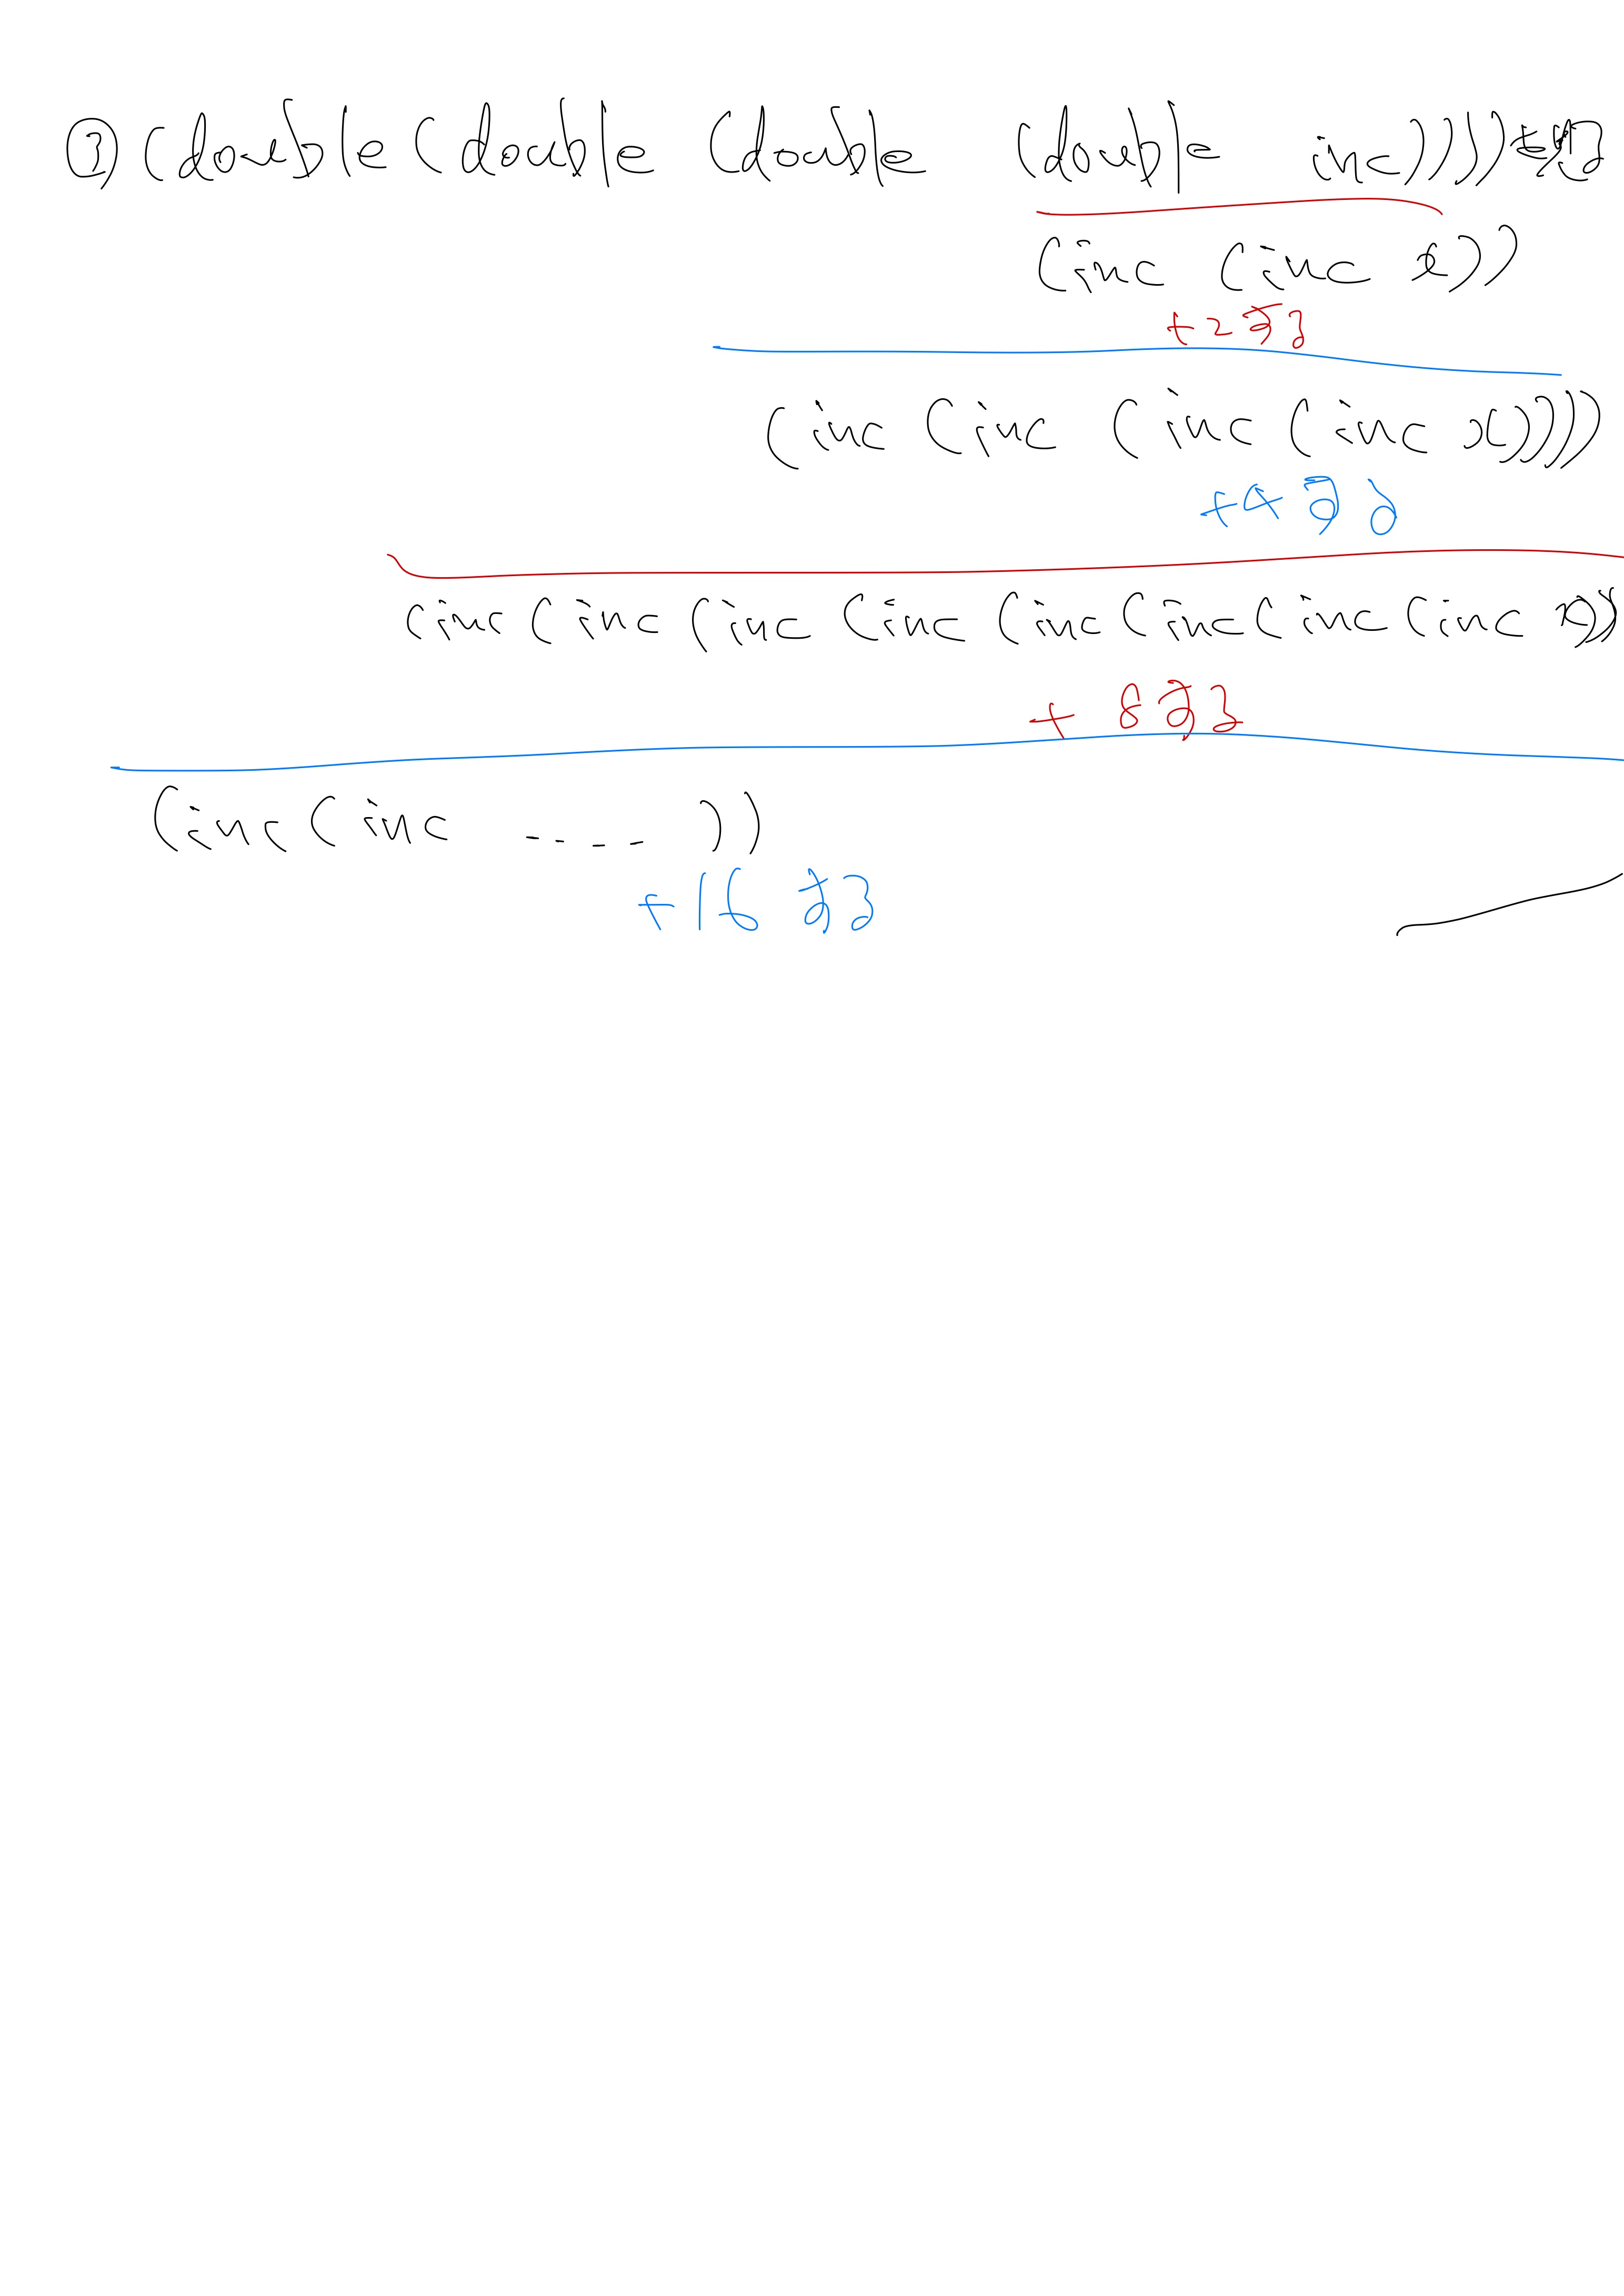 ① (double (double (double (double inc))))
(inc (inc x))
+2する
(inc (inc (inc (inc x))))
+4する
(inc (inc (inc (inc (inc (inc (inc (inc x))
+8する
(inc (inc ---- ))
+16する